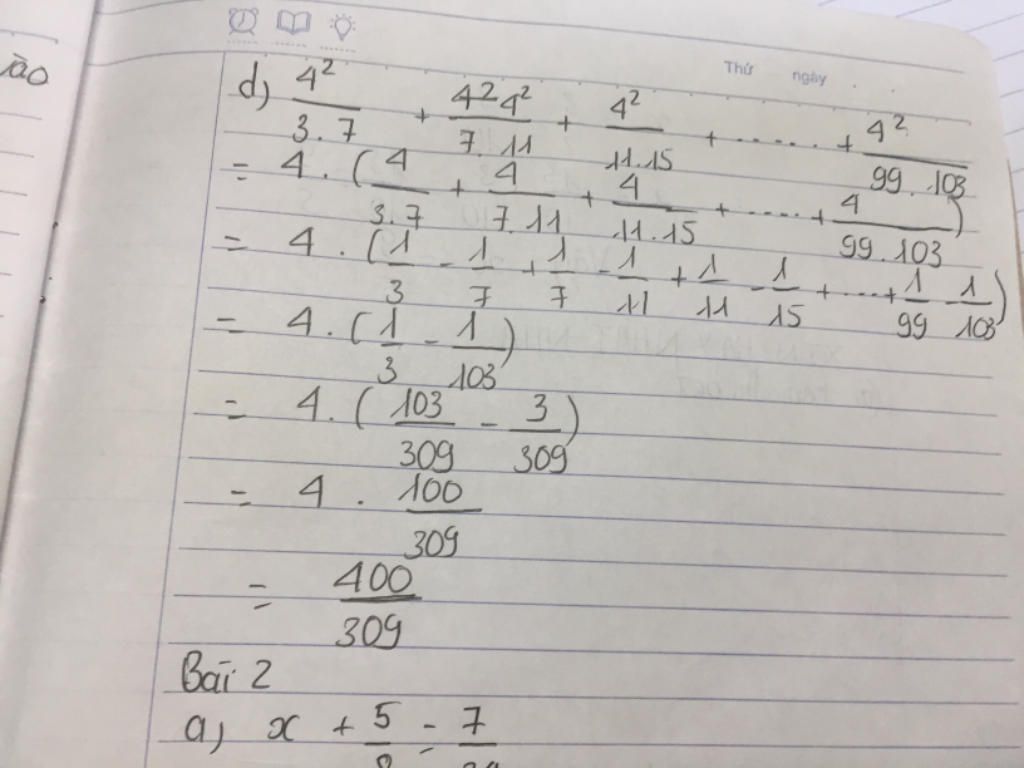 ào
Thứ ngày
d) 4²/3.7 + 4²/7.11 + 4²/11.15 + ..... + 4²/99.103
= 4.(4/3.7 + 4/7.11 + 4/11.15 + ..... + 4/99.103)
= 4.(1/3 - 1/7 + 1/7 - 1/11 + 1/11 - 1/15 + ..... + 1/99 - 1/103)
= 4.(1/3 - 1/103)
= 4.(103/309 - 3/309)
= 4.100/309
= 400/309
Bài 2
a) x + 5/8 = 7